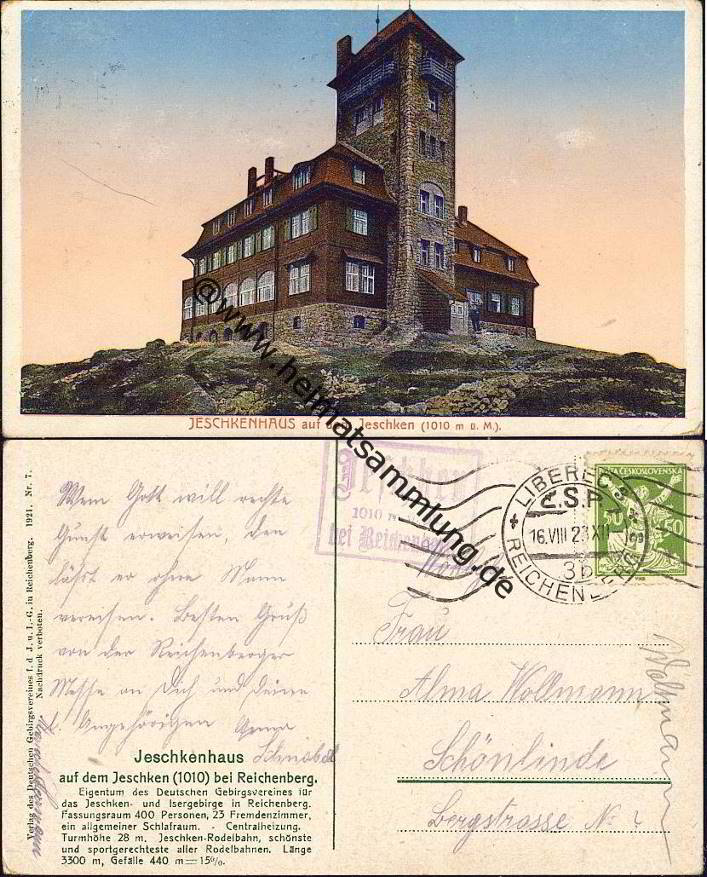 JESCHKENHAUS auf dem Jeschken (1010 m ü. M.).
@www.heimatsammlung.de
Verlag des Deutschen Gebirgsvereines f. d. J. u. I.-G. in Reichenberg. 1921. Nr. 7.
Nachdruck verboten.
Wem Gott will rechte
Gunst erweisen, den
läßt er ohne Mann
verreisen. Besten Gruß
von der Reichenberger
Messe an Dich und Deine
l. Angehörigen
Schnabel
Jeschken
1010 m
bei Reichenberg
LIBEREC 3
Č.S.P.
16.VIII 23 XII
3b
REICHENBERG
ČESKOSLOVENSKÁ
50 50
Frau
Alma Wollmann
Schönlinde
Bergstrasse No
Jeschkenhaus
auf dem Jeschken (1010) bei Reichenberg.
Eigentum des Deutschen Gebirgsvereines für
das Jeschken- und Isergebirge in Reichenberg.
Fassungsraum 400 Personen, 23 Fremdenzimmer,
ein allgemeiner Schlafraum. - Centralheizung.
Turmhöhe 28 m. Jeschken-Rodelbahn, schönste
und sportgerechteste aller Rodelbahnen. Länge
3300 m, Gefälle 440 m=15%.